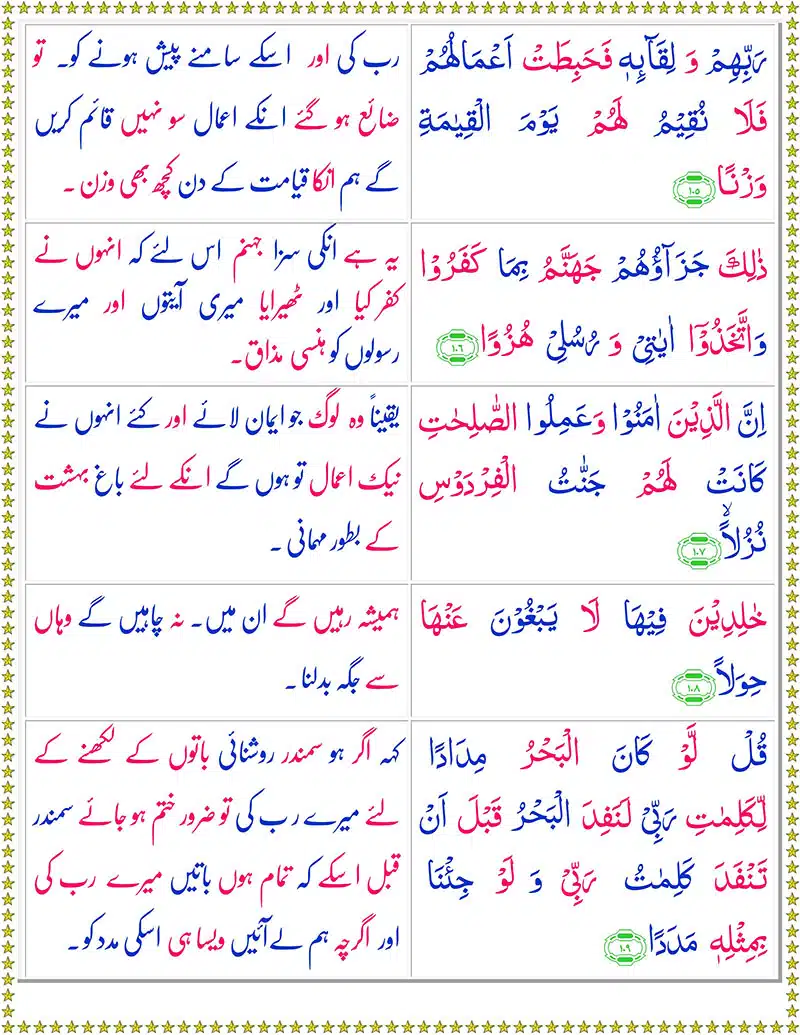 رَبِّهِمْ وَ لِقَآئِهٖ فَحَبِطَتْ اَعْمَالُهُمْ
فَلَا نُقِيْمُ لَهُمْ يَوْمَ الْقِيٰمَةِ
وَزْنًا ۱۰۵
رب کی اور اسکے سامنے پیش ہونے کو۔ تو
ضائع ہو گئے انکے اعمال سو نہیں قائم کریں
گے ہم انکا قیامت کے دن کچھ بھی وزن ۔
ذٰلِكَ جَزَآؤُهُمْ جَهَنَّمُ بِمَا كَفَرُوْا
وَاتَّخَذُوْۤا اٰيٰتِيْ وَ رُسُلِيْ هُزُوًا ۱۰۶
یہ ہے انکی سزا جہنم اس لئے کہ انہوں نے
کفر کیا اور ٹھیرایا میری آیتوں اور میرے
رسولوں کو ہنسی مذاق۔
اِنَّ الَّذِيْنَ اٰمَنُوْا وَعَمِلُوا الصّٰلِحٰتِ
كَانَتْ لَهُمْ جَنّٰتُ الْفِرْدَوْسِ
نُزُلًاۙ ۱۰۷
یقیناً وہ لوگ جو ایمان لائے اور کئے انہوں نے
نیک اعمال تو ہوں گے انکے لئے باغ بہشت
کے بطور مہمانی ۔
خٰلِدِيْنَ فِيْهَا لَا يَبْغُوْنَ عَنْهَا
حِوَلًا ۱۰۸
ہمیشہ رہیں گے ان میں۔ نہ چاہیں گے وہاں
سے جگہ بدلنا ۔
قُلْ لَّوْ كَانَ الْبَحْرُ مِدَادًا
لِّكَلِمٰتِ رَبِّيْ لَنَفِدَ الْبَحْرُ قَبْلَ اَنْ
تَنْفَدَ كَلِمٰتُ رَبِّيْ وَ لَوْ جِئْنَا
بِمِثْلِهٖ مَدَدًا ۱۰۹
کہہ اگر ہو سمندر روشنائی باتوں کے لکھنے کے
لئے میرے رب کی تو ضرور ختم ہو جائے سمندر
قبل اسکے کہ تمام ہوں باتیں میرے رب کی
اور اگرچہ ہم لے آئیں ویسا ہی اسکی مدد کو ۔